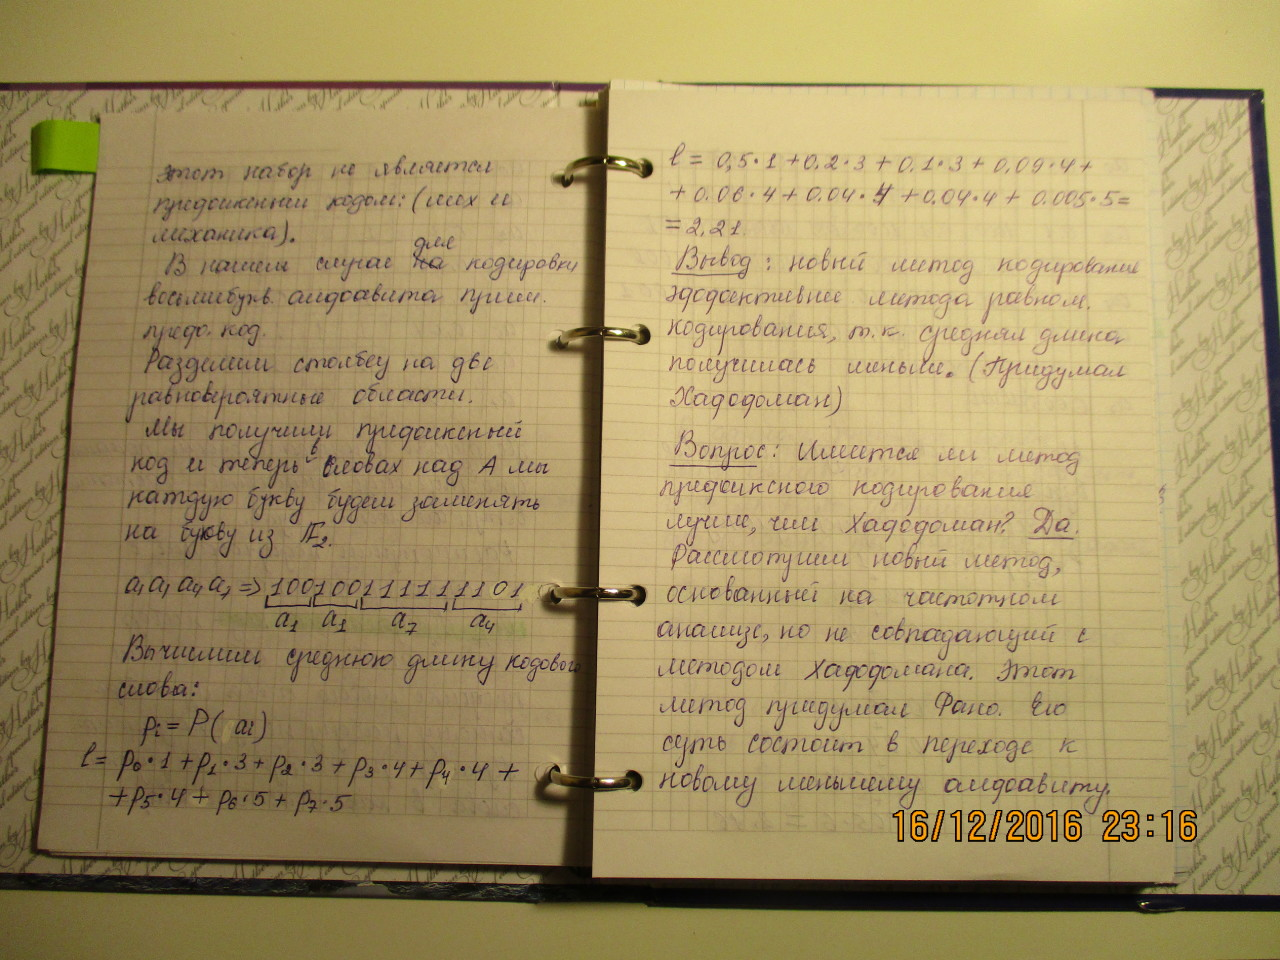 этот набор не является
префиксным кодом: (мех и
механика).
В нашем случае для кодировки
восьмибукв. алфавита прим.
преф. код.
Разделим столбец на две
равновероятные области.
Мы получили префиксный
код и теперь в словах над A мы
каждую букву будем заменять
на букву из F₂.
a₁a₁a₄a₇ => 100100111111101
a₁ a₁ a₇ a₄
Вычислим среднюю длину кодового
слова:
pᵢ = P(aᵢ)
l = p₀·1 + p₁·3 + p₂·3 + p₃·4 + p₄·4 +
+ p₅·4 + p₆·5 + p₇·5
l = 0,5·1 + 0.2·3 + 0.1·3 + 0.09·4 +
+ 0.06·4 + 0.04·4 + 0.04·4 + 0.005·5 =
= 2,21
Вывод: новый метод кодирование
эффективнее метода равном.
кодирования, т.к. средняя длина
получилась меньше. (Придумал
Хаффман)
Вопрос: Имеется ли метод
префиксного кодирования
лучше, чем Хаффоман? Да.
Рассмотрим новый метод,
основанный на частотном
анализе, но не совпадающий с
методом Хаффомана. Этот
метод придумал Фано. Его
суть состоит в переходе к
новому меньшему алфавиту.
16/12/2016 23:16